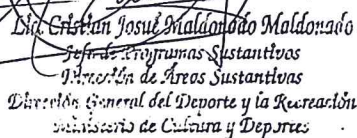 Lic. Cristian Josué Maldonado Maldonado
Jefe de Programas Sustantivos
Dirección de Áreos Sustantivas
Dirección General del Deporte y la Recreación
Ministerio de Cultura y Deportes